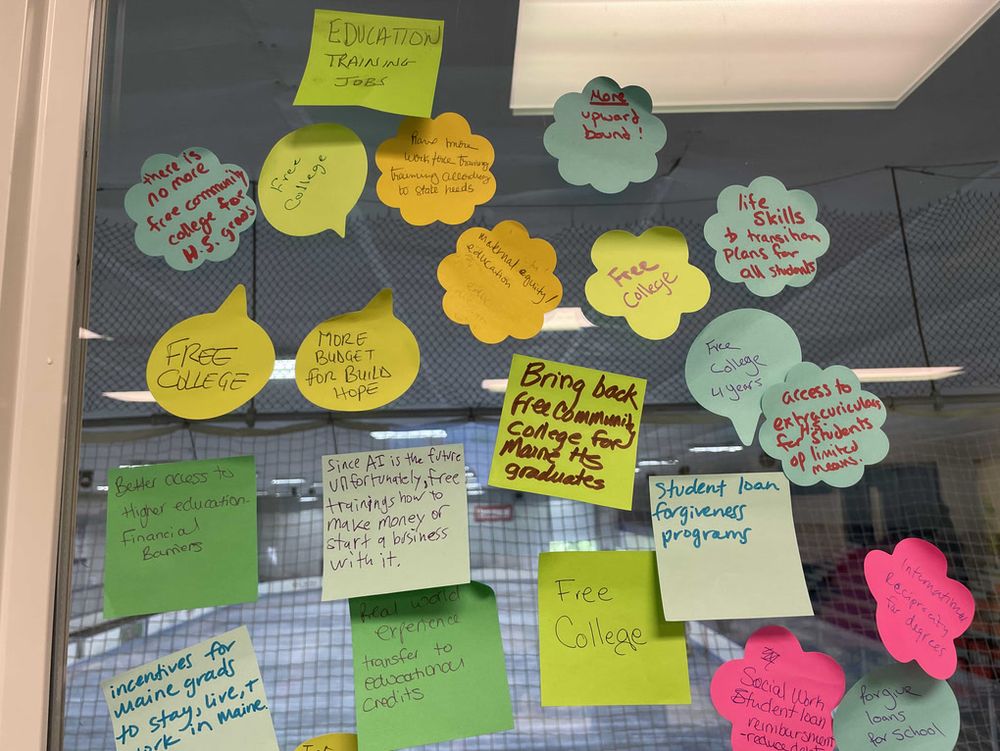 EDUCATION
TRAINING
JOBS
More
upward
bound!
there is
no more
free community
college for
H.S. grads
Free
College
Have more
workforce training
training according
to state needs
life
skills
to transition
plans for
all students
maternal equity/
education
Free
College
FREE
COLLEGE
MORE
BUDGET
FOR BUILD
HOPE
Free
College
4 years
Bring back
free community
college for
Maine HS
graduates
access to
extracuriculars
for H.S. students
of limited
means.
Better access to
Higher education-
Financial
Barriers
Since AI is the future
unfortunately, free
trainings how to
make money or
start a business
with it.
Student loan
forgiveness
programs
Real world
experience
transfer to
educational
credits
Free
College
International
Reciprocity
for degrees
incentives for
Maine grads
to stay, live, +
work in Maine.
Social Work
Student loan
reimbursment
forgive
loans
for School